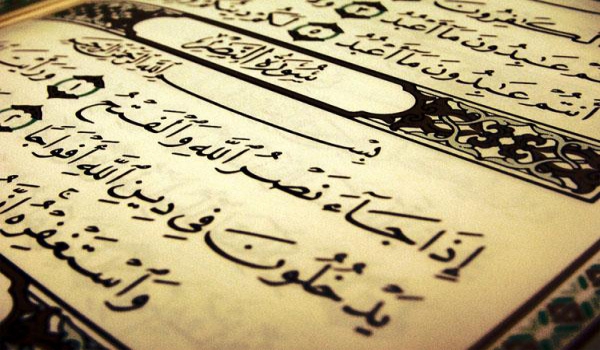 ٱلْكَٰفِرُونَ
عَٰبِدُونَ مَآ أَعْبُدُ ٣
أَنتُمْ عَٰبِدُونَ مَآ أَعْبُدُ ٥ لَكُمْ دِينُكُمْ
سُورَةُ النَّصْرِ
بِسْمِ ٱللَّهِ ٱلرَّحْمَٰنِ ٱلرَّحِيمِ
إِذَا جَآءَ نَصْرُ ٱللَّهِ وَٱلْفَتْحُ ١ وَرَأَيْتَ
يَدْخُلُونَ فِى دِينِ ٱللَّهِ أَفْوَاجًا ٢
وَٱسْتَغْفِرْهُ